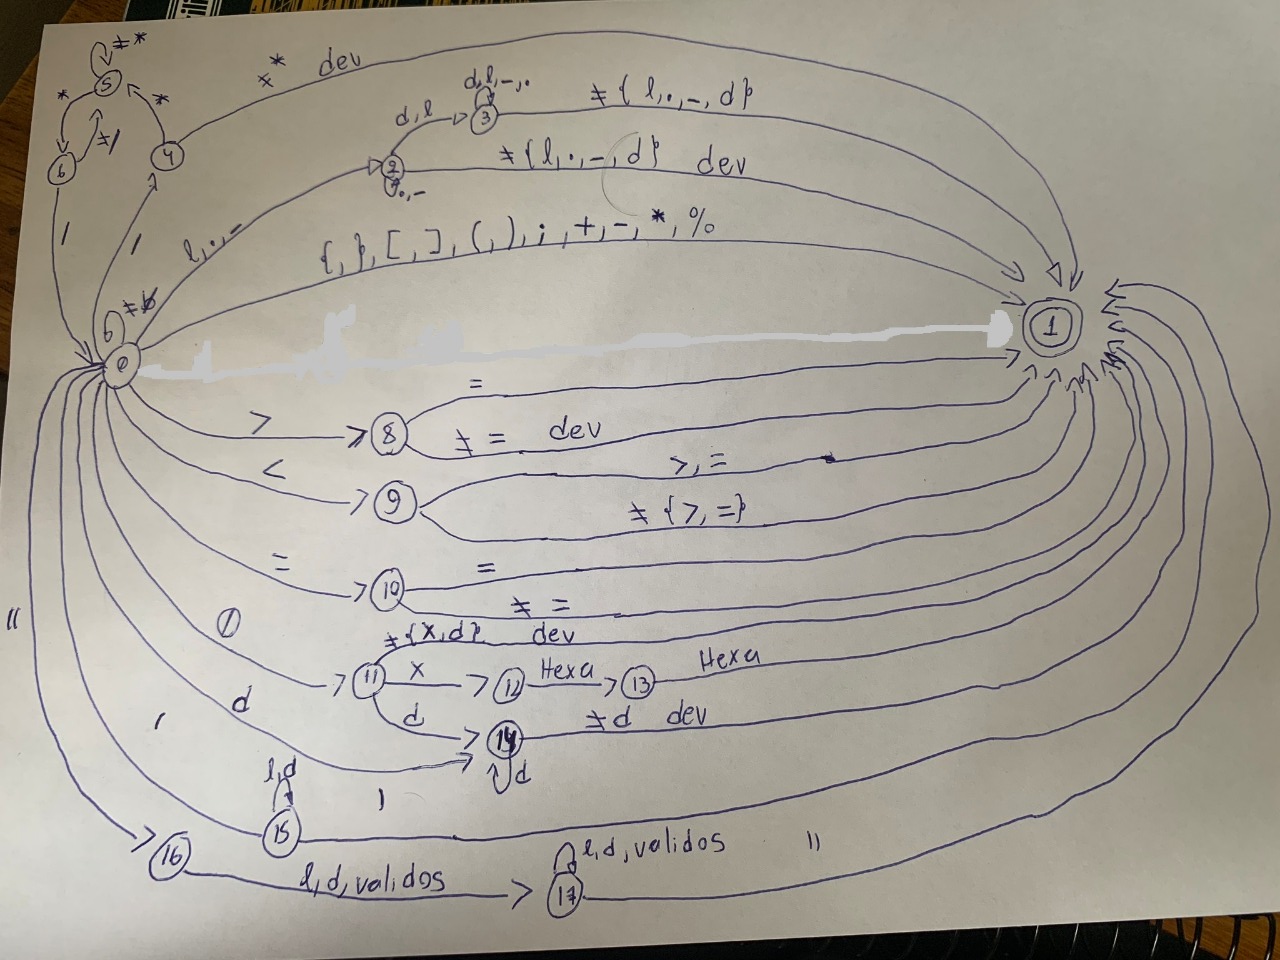 ≠*
5
*
*
≠/
6
4
/
/
≠* dev
d,l,_,.
3
≠{l,.,_,d}
d,l
2
.,_
≠{l,.,_,d} dev
l,.,_
{,},[,],(,),;,+,-,*,%
≠b
b
0
1
>
8
=
≠= dev
<
9
>,=
≠{>,=}
=
10
=
≠=
0
11
≠{x,d} dev
x
12
Hexa
13
Hexa
d
14
≠d dev
d
d
'
15
l,d
'
"
16
l,d,validos
17
l,d,validos
"